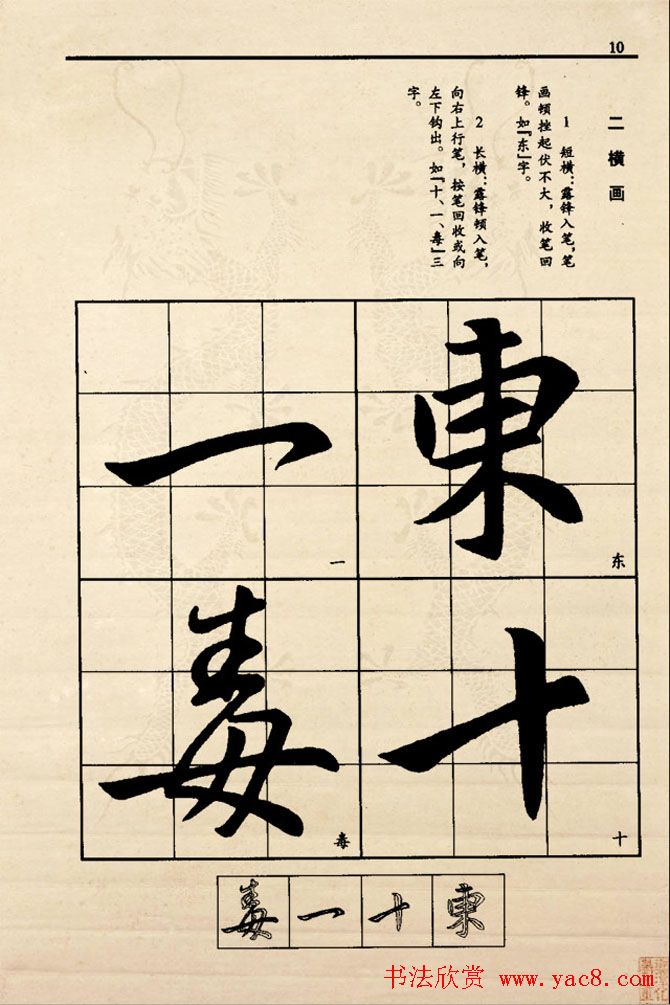 10
二 横 画
1 短横：露锋入笔，笔
画顿挫起伏不大，收笔回
锋。如『东』字。
2 长横：露锋顿入笔，
向右上行笔，按笔回收或向
左下钩出。如『十、一、毒』三
字。
東
东
十
十
一
一
毒
毒
毒 一 十 東
书法欣赏 www.yac8.com